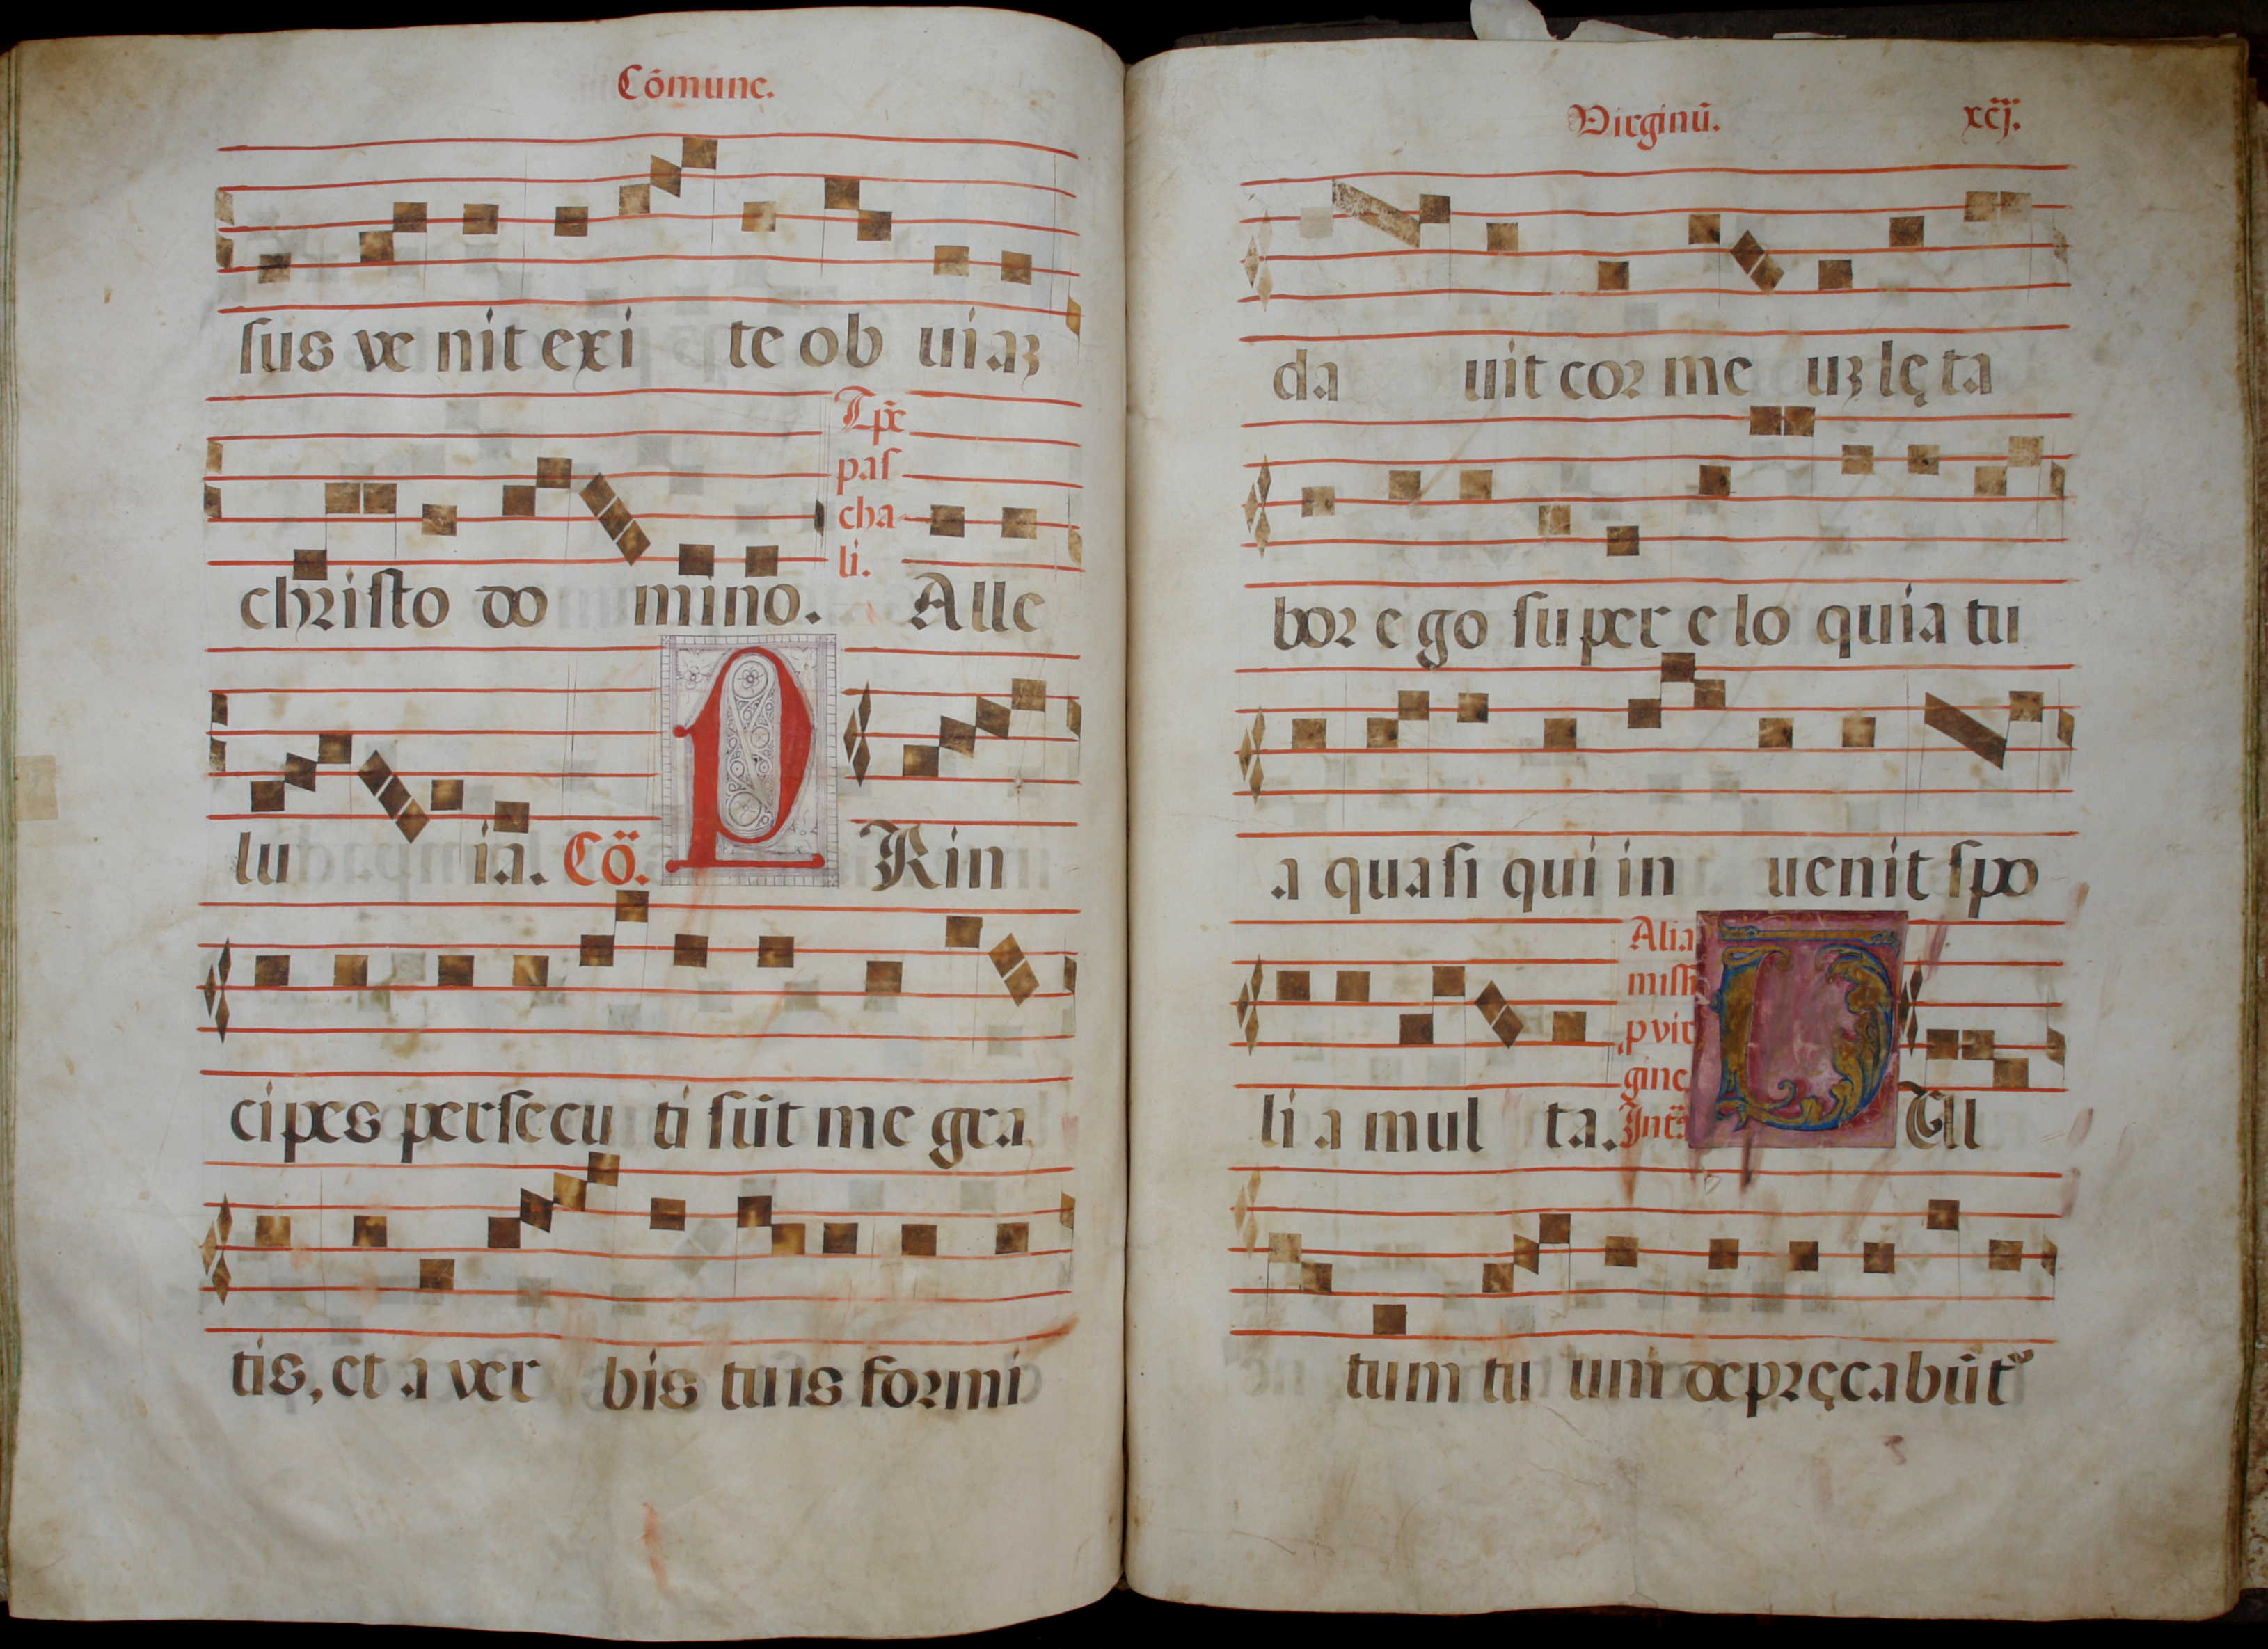 Cõmune.
sus ve nit exi te ob uiaʒ
Tp̃e
pas
cha
li.
christo do mino. Alle
lu ia. Cõ. P Rin
cipes persecu ti sũt me gra
tis, et a ver bis tuis formi
Virginũ. xcij.
da uit cor me uʒ lęta
bor ego super elo quia tu
a quasi qui in uenit spo
Alia
miss
p vir
gine
lia mul ta. Int. V Ul
tum tu um depręcabũt